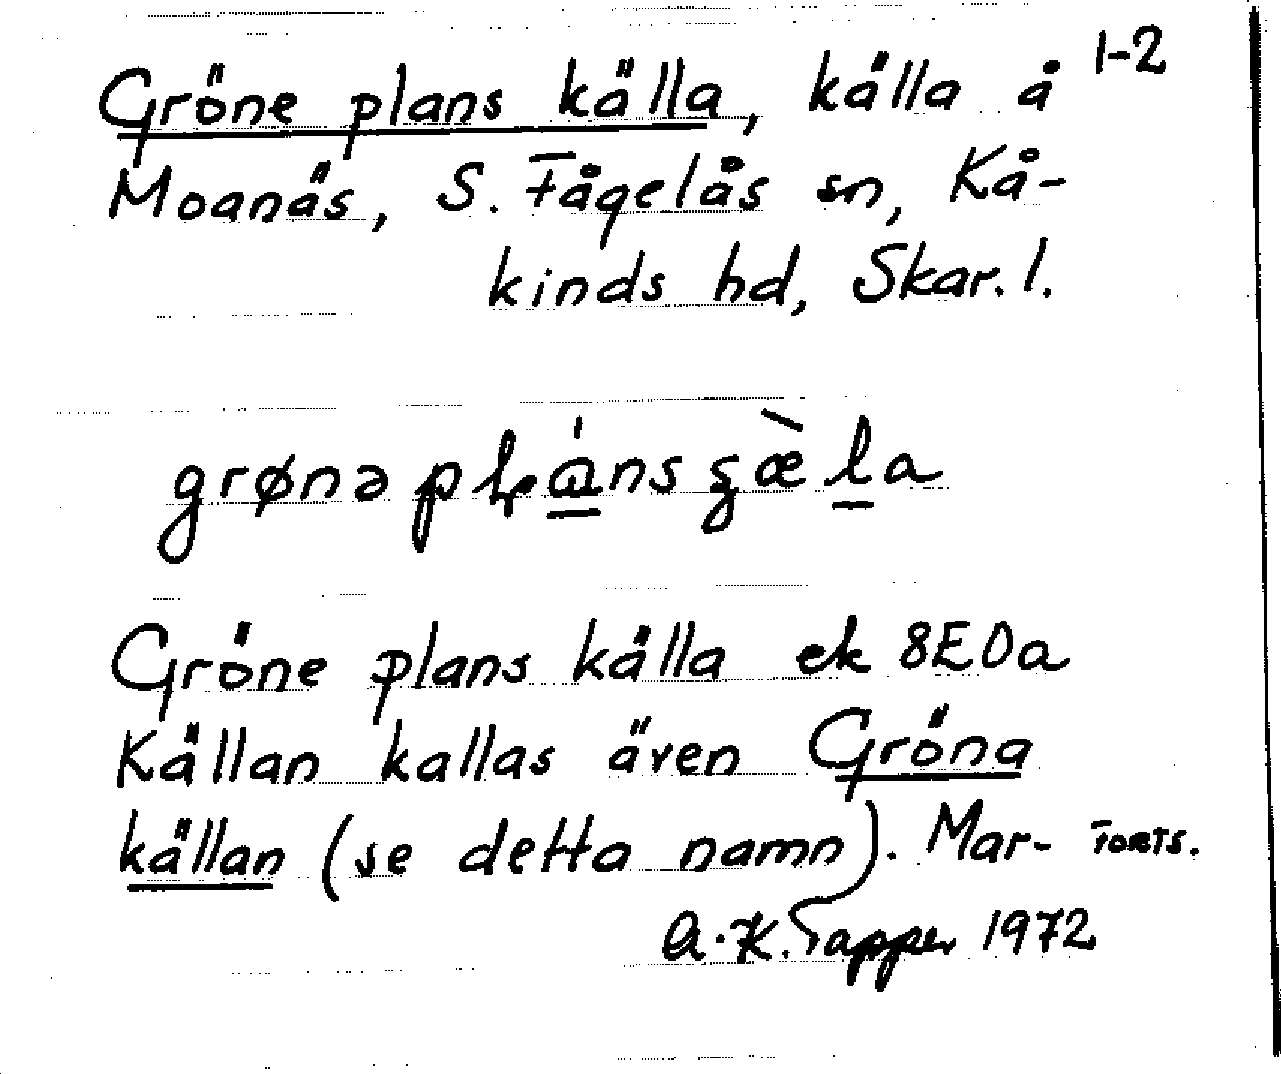 Gröne plans källa, källa å 1-2
Moanäs, S. Fågelås sn, Kå-
kinds hd, Skar. l.
Gröne plans källa ek 8E0a
Källan kallas även Gröna
källan (se detta namn). Mar- forts.
A.-K. Tapper 1972